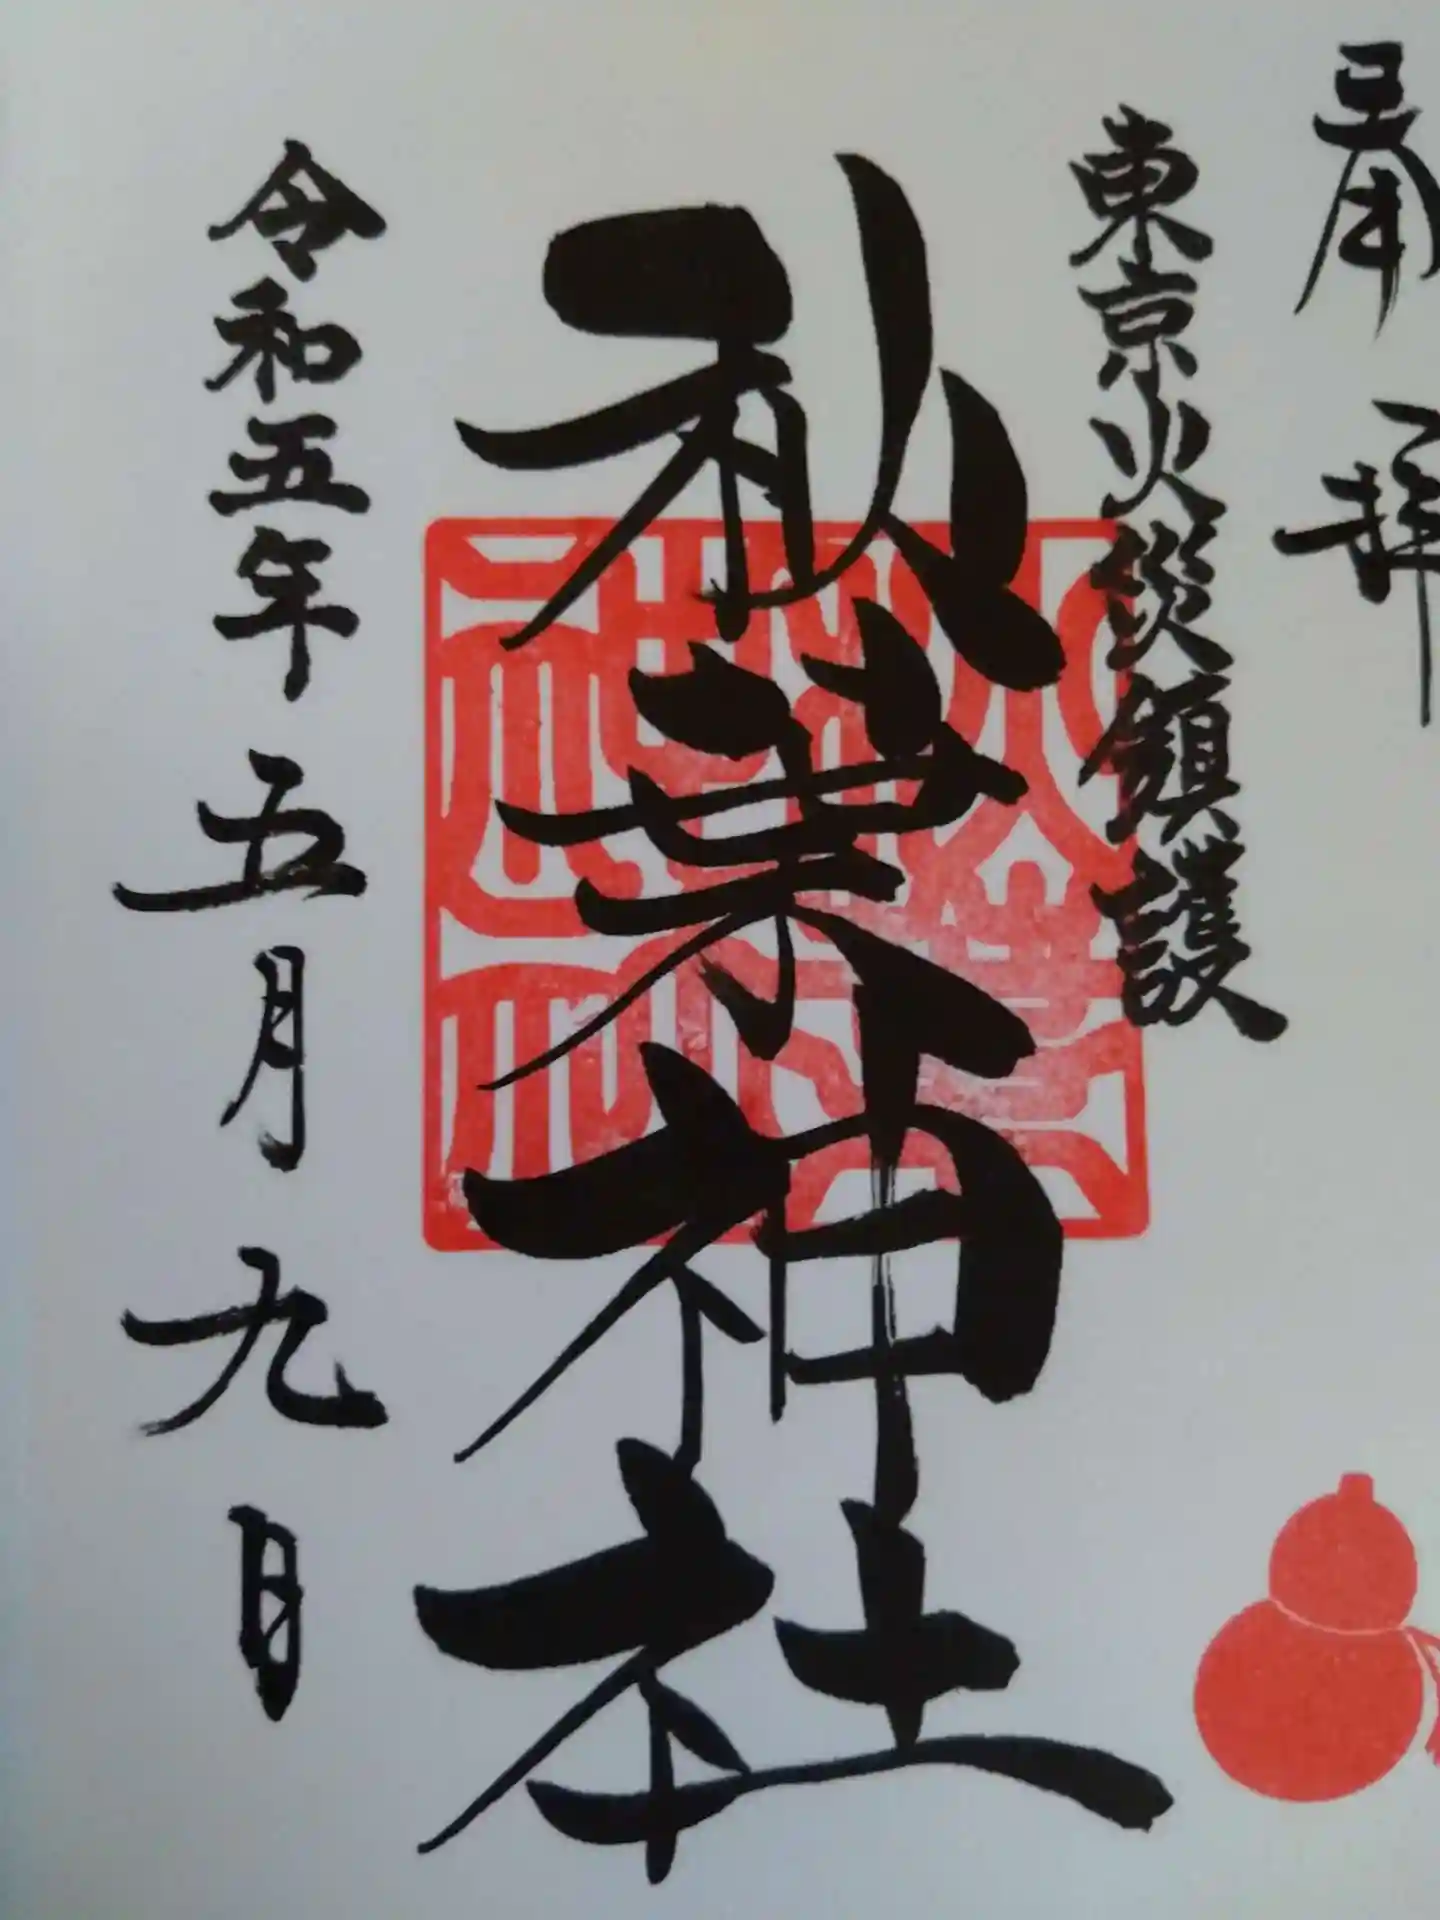 奉拝
東京火災鎮護
秋葉神社
令和五年五月九日